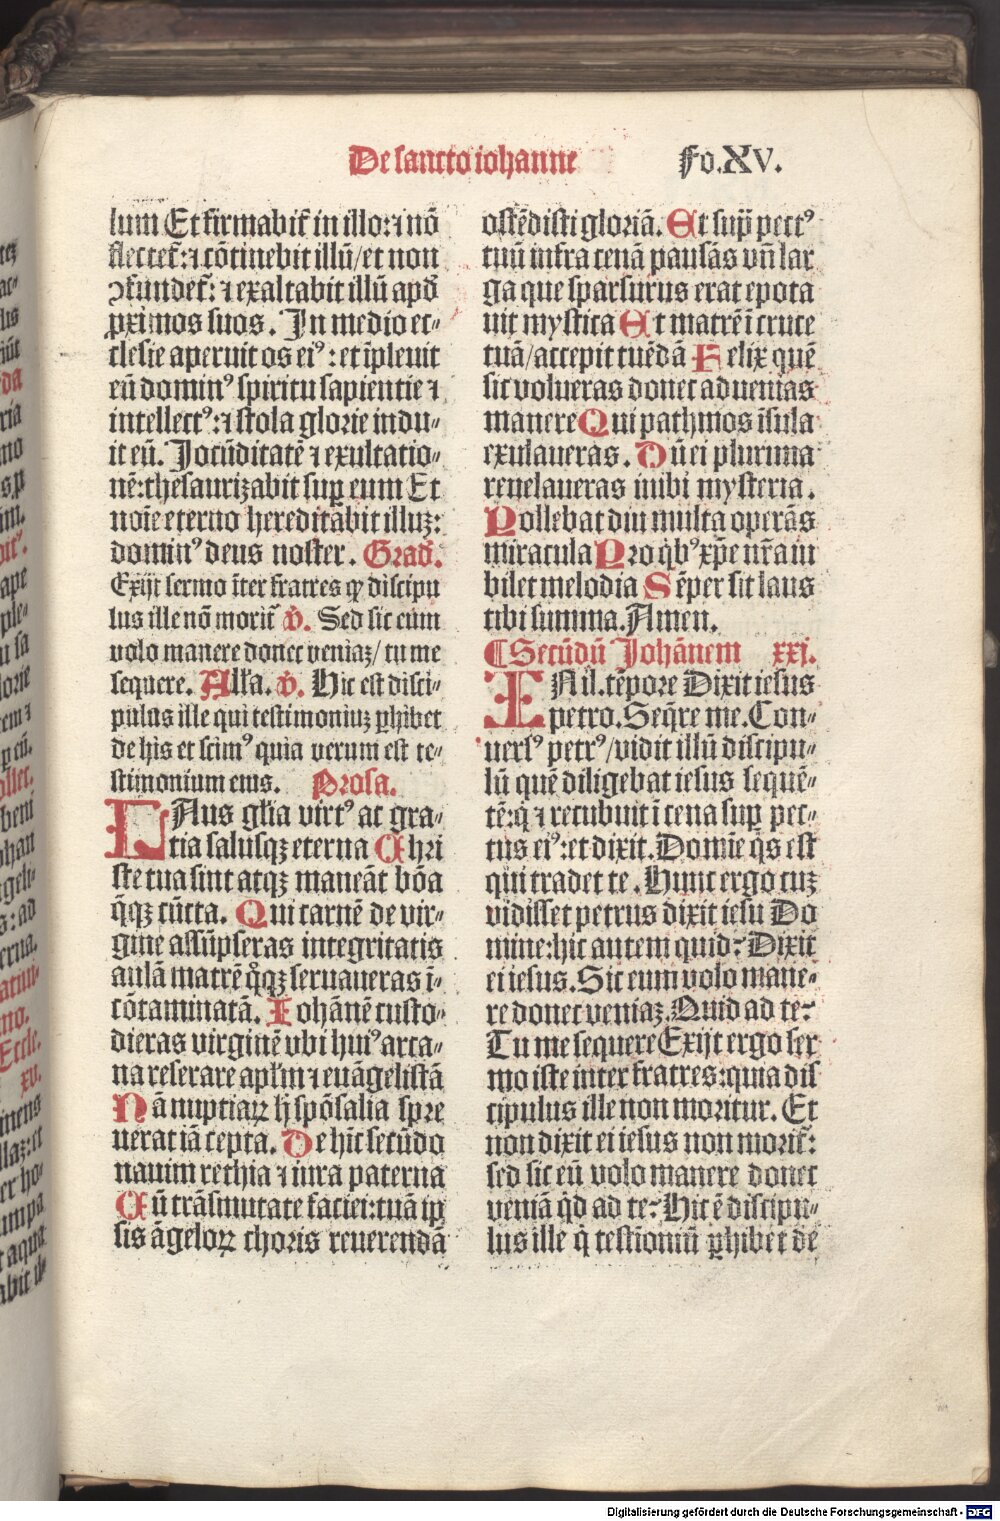 De sancto iohanne Fo.XV.
lum Et firmabit̃ in illo: ⁊ nõ
flectet̃: ⁊ cõtinebit illũ/et non
ꝯfundet̃: ⁊ exaltabit illũ apď
ꝓximos suos. In medio ec⸗
clesie aperuit os eiꝰ: et ĩpleuit
eũ dominꝰ spiritu sapientie ⁊
intellectꝰ: ⁊ stola glorie indu⸗
it eũ. Jocũditatẽ ⁊ exultatio⸗
nẽ: thesaurizabit suꝑ eum Et
noĩe eterno hereditabit illuꝫ:
dominꝰ deus noster. Grad̃.
Exijt sermo ĩter fratres ꝙ discipu
lus ille nõ morit̃ ꝟ. Sed sic eum
volo manere donec veniaꝫ/ tu me
sequere. Alľa. ꝟ. Hic est disci⸗
pulus ille qui testimoniuꝫ ꝑhibet
de his et scimꝰ quia verum est te⸗
stimonium eius. Prosa.
LAus gľia virtꝰ ac gra⸗
tia salusqꝫ eterna Chri
ste tua sint atqꝫ maneãt bõa
q̃qꝫ cũcta. Qui carnẽ de vir⸗
gine assũpseras integritatis
aulã matrẽ q̃qꝫ seruaueras ĩ⸗
cõtaminatã. Iohãnẽ custo⸗
dieras virginẽ vbi huiꝰ arca⸗
na reserare apľm ⁊ euãgelistã
Nã nuptiaꝝ ħ spõsalia spre
uerat iã cepta. De hĩc secũdo
nauim rethia ⁊ iura paterna
Cũ trãsmutate faciei: tuã ip
sis ãgeloꝝ choris reuerendã
ostẽdisti gloriã. Et suꝑ pectꝰ
tuũ infra cenã pausãs vñ lar
ga que sparsurus erat epota
uit mystica Et matrẽ ĩ cruce
tuã/accepit tuẽdã Felix quẽ
sic volueras donec aduenias
manere Qui pathmos isula
exulaueras. Cũ ei plurima
reuelaueras inibi mysteria.
Pollebat diu multa operãs
miracula Pro qͥbꝰ xp̃e nr̃a iu
bilet melodia Sẽper sit laus
tibi summa. Amen.
¶Secũdũ Johãnem xxi.
IN il. tẽpore Dixit iesus
petro. Seq̃re me. Con⸗
uersꝰ petrꝰ/vidit illũ discipu⸗
lũ quẽ diligebat iesus sequẽ⸗
tẽ: qͥ ⁊ recubuit i cena suꝑ pec⸗
tus eiꝰ: et dixit. Domĩe qͥs est
qui tradet te. Hunc ergo cuꝫ
vidisset petrus dixit iesu Do
mine: hic autem quid? Dixit
ei iesus. Sic eum volo mane⸗
re donec veniaꝫ. Quid ad te?
Tu me sequere Exijt ergo ser
mo iste inter fratres: quia dis
cipulus ille non moritur. Et
non dixit ei iesus non morit̃:
sed sic eũ volo manere donec
veniã qͥd ad te? Hic ẽ discipu⸗
lus ille qͥ testĩoniũ ꝑhibet de
Digitalisierung gefördert durch die Deutsche Forschungsgemeinschaft - DFG